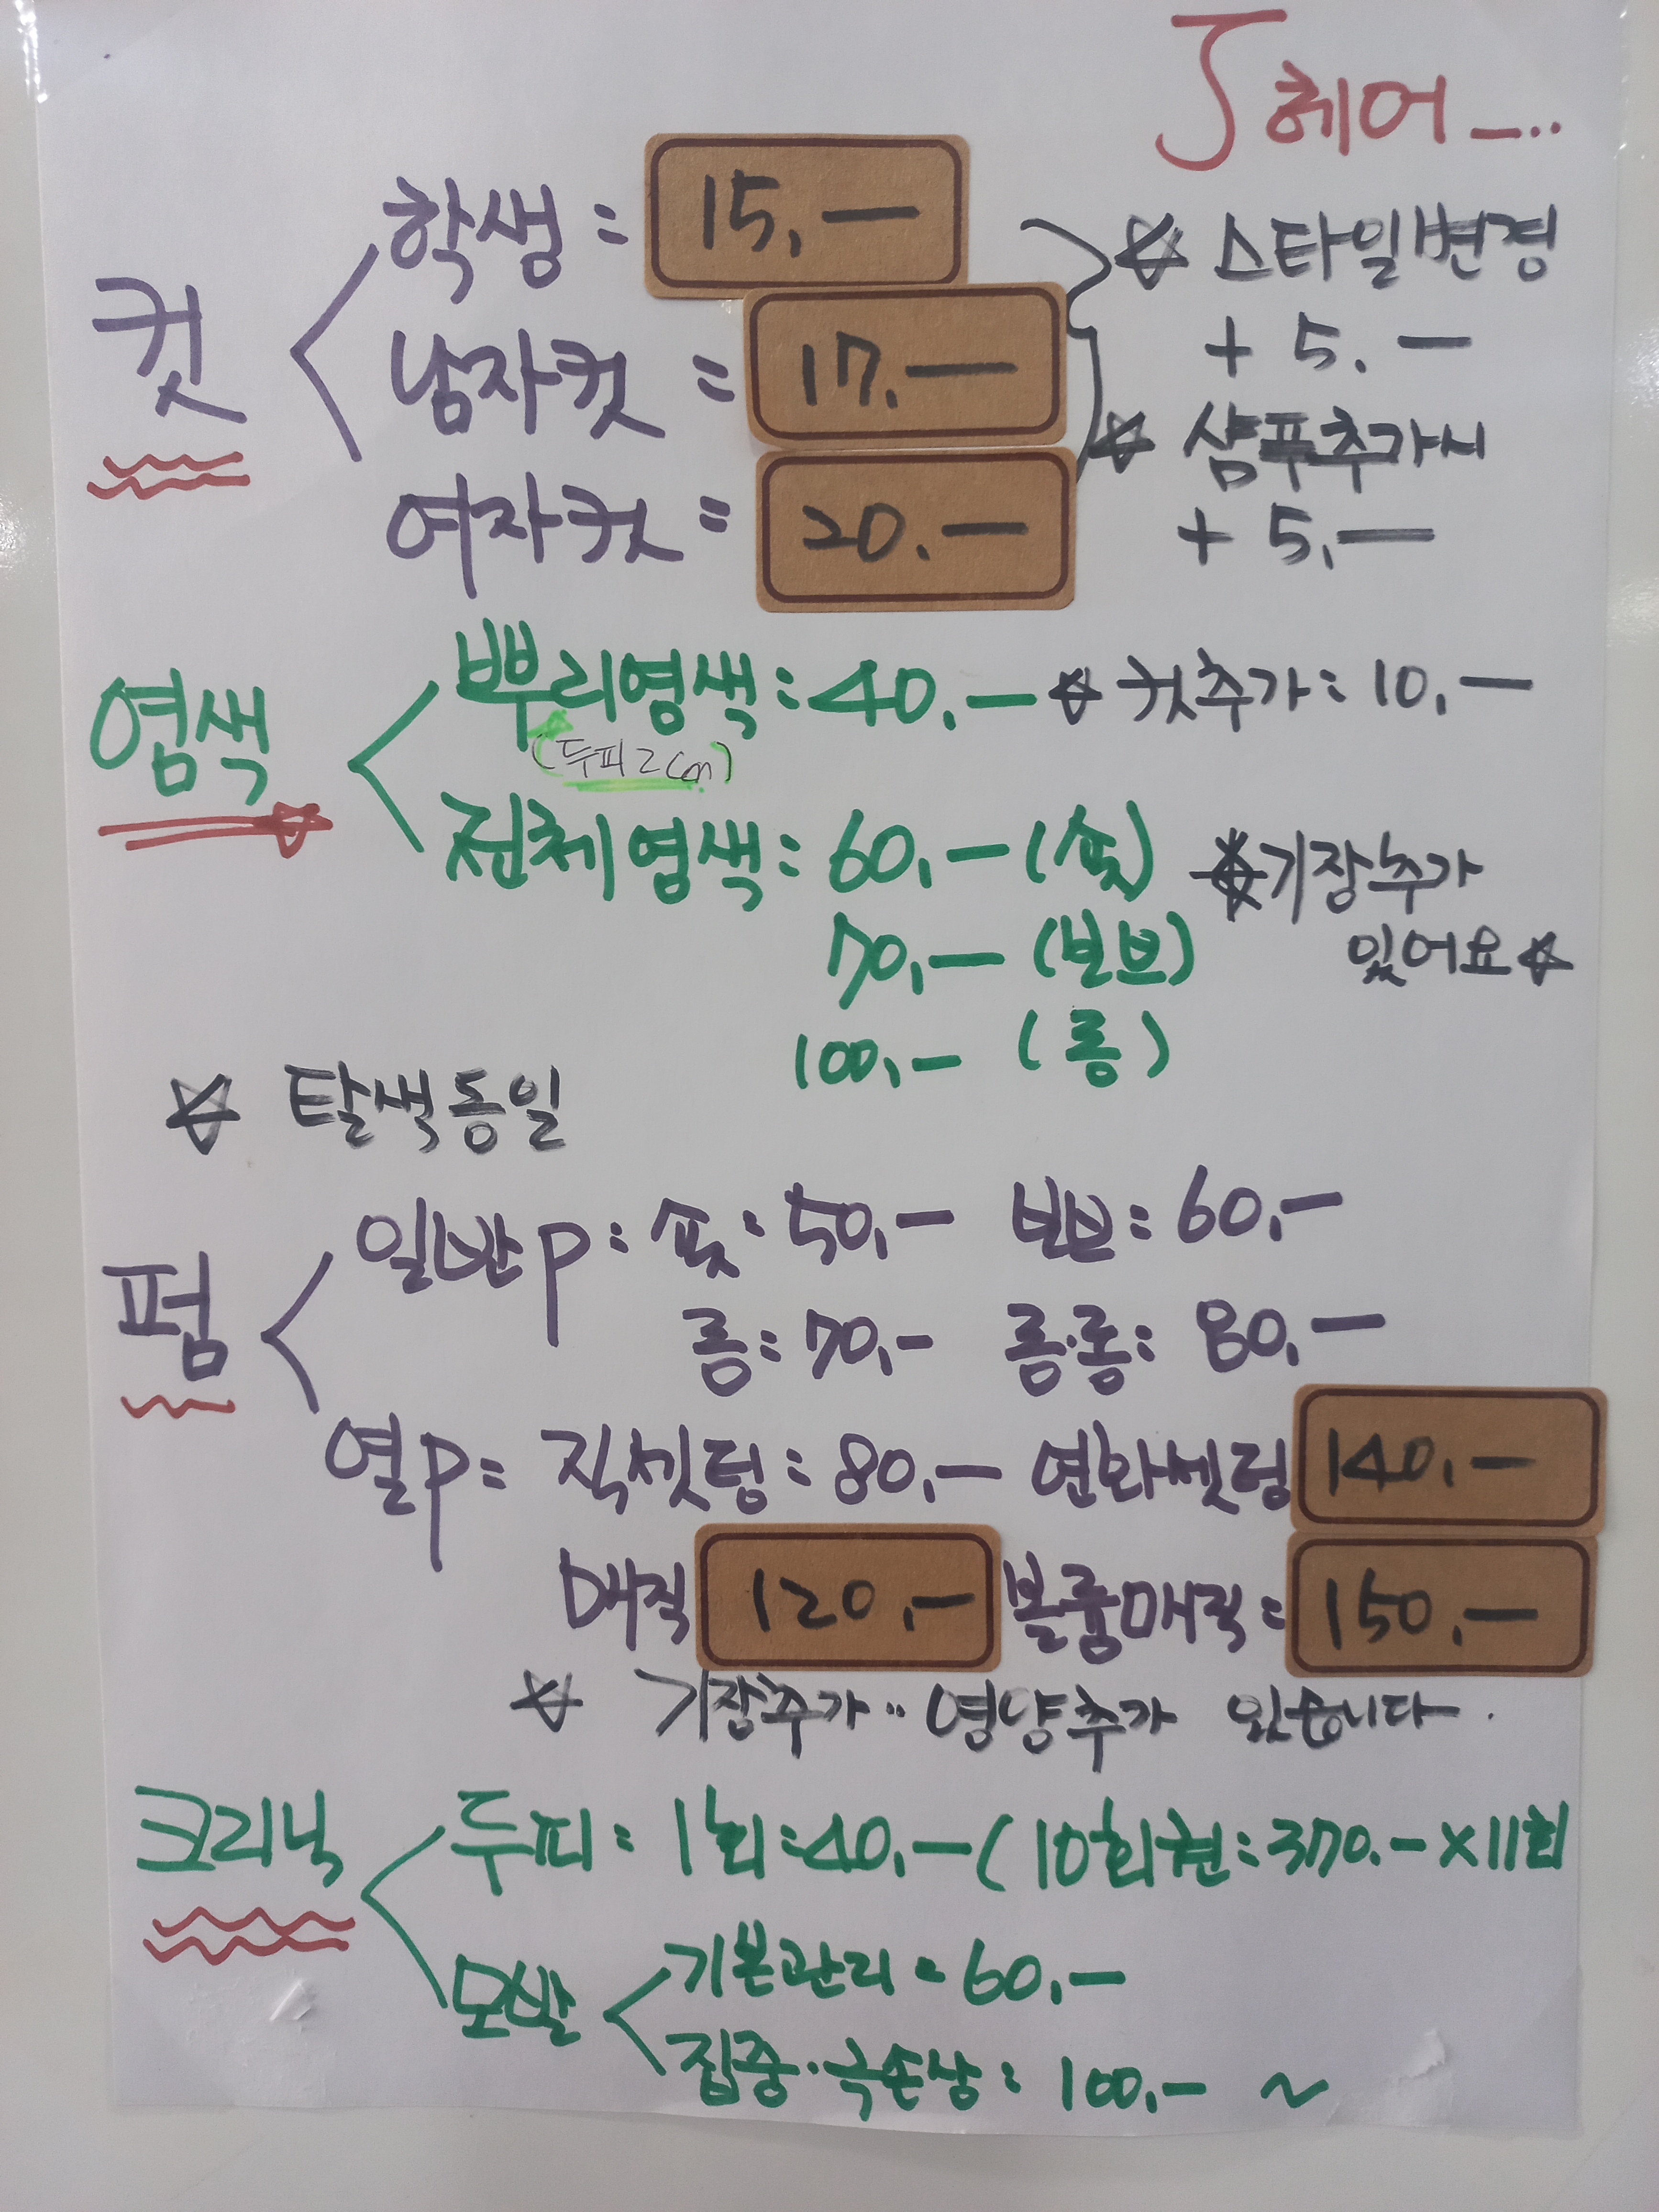 J 헤어_...
컷
학생 = 15,—
남자컷 = 17.—
여자컷 = 20.—
☆ 스타일변경
+ 5.—
☆ 샴푸추가시
+ 5,—
염색
뿌리염색 : 40.— ☆ 컷추가 : 10.—
(두피 2cm)
전체염색 : 60.— (숏) ☆기장추가
70.— (보브) 있어요☆
100.— (롱)
☆ 탈색동일
펌
일반P : 숏 : 50.— 보브 : 60.—
롱 : 70.— 롱·롱 : 80.—
열P = 직셋팅 : 80.— 연화셋팅 140.—
매직 120.— 볼륨매직 = 150.—
☆ 기장추가.. 영양추가 있습니다.
크리닉
두피 : 1회 : 40.— (10회권 : 370.— X 11회
모발
기본관리 = 60.—
집중·극손상 : 100.— ~